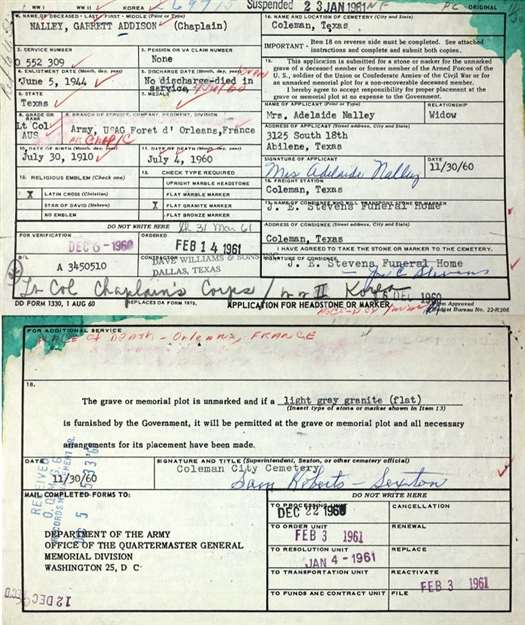 WW I
WW II
KOREA
Suspended 23 JAN 1961
ORIGINAL
NAME OF DECEASED - LAST - FIRST - MIDDLE (Print or Type)
NALLEY, GARRETT ADDISON (Chaplain)
14. NAME AND LOCATION OF CEMETERY (City and State)
Coleman, Texas
IMPORTANT - Item 18 on reverse side must be completed. See attached
instructions and complete and submit both copies.
2. SERVICE NUMBER
O 552 309
3. PENSION OR VA CLAIM NUMBER
None
15. This application is submitted for a stone or marker for the unmarked
grave of a deceased member or former member of the Armed Forces of the
U. S., soldier of the Union or Confederate Armies of the Civil War or for
an unmarked memorial plot for a non-recoverable deceased member.
I hereby agree to accept responsibility for proper placement at the
grave or memorial plot at no expense to the Government.
4. ENLISTMENT DATE (Month, day, year)
June 5, 1944
5. DISCHARGE DATE (Month, day, year)
No discharge-died in
service.
6. STATE
Texas
7. MEDALS
NAME OF APPLICANT (Print or Type)
Mrs. Adelaide Nalley
RELATIONSHIP
Widow
8. GRADE OR RANK
Lt Col
AUS
9. BRANCH OF SERVICE, COMPANY, REGIMENT, DIVISION
Army, USAG Foret d' Orleans,France
ADDRESS OF APPLICANT (Street address, City and State)
3125 South 18th
Abilene, Texas
10. DATE OF BIRTH (Month, day, year)
July 30, 1910
11. DATE OF DEATH (Month, day, year)
July 4, 1960
SIGNATURE OF APPLICANT
Mrs Adelaide Nalley
11/30/60
12. RELIGIOUS EMBLEM (Check one)
X LATIN CROSS (Christian)
STAR OF DAVID (Hebrew)
NO EMBLEM
13. CHECK TYPE REQUIRED
UPRIGHT MARBLE HEADSTONE
FLAT MARBLE MARKER
X FLAT GRANITE MARKER
FLAT BRONZE MARKER
16. FREIGHT STATION
Coleman, Texas
17. NAME OF CONSIGNEE WHO WILL TRANSPORT STONE OR MARKER
J. E. Stevens Funeral Home
DO NOT WRITE HERE
31 Mar 61
ADDRESS OF CONSIGNEE (Street address, City and State)
Coleman, Texas
FOR VERIFICATION
DEC 6 - 1960
ORDERED
FEB 14 1961
I HAVE AGREED TO TAKE THE STONE OR MARKER TO THE CEMETERY.
B/L
A 3450510
CONTRACTOR
DAVE WILLIAMS & SONS INC
DALLAS, TEXAS
SIGNATURE OF CONSIGNEE
J. E. Stevens Funeral Home
Lt Col Chaplain's Corps / WW II Korea
DEC 1960
DD FORM 1330, 1 AUG 60
REPLACES DA FORM 1673,
APPLICATION FOR HEADSTONE OR MARKER
Form Approved
Budget Bureau No. 22-R208
FOR ADDITIONAL SERVICE
PLACE OF DEATH - Orleans, FRANCE
18.
The grave or memorial plot is unmarked and if a light grey granite (flat)
(Insert type of stone or marker shown in Item 13)
is furnished by the Government, it will be permitted at the grave or memorial plot and all necessary
arrangements for its placement have been made.
DATE
11/30/60
SIGNATURE AND TITLE (Superintendent, Sexton, or other cemetery official)
Coleman City Cemetery
Sam Roberts - Sexton
RECEIVED
MAIL COMPLETED FORMS TO:
DEPARTMENT OF THE ARMY
OFFICE OF THE QUARTERMASTER GENERAL
MEMORIAL DIVISION
WASHINGTON 25, D C
12 DEC
DO NOT WRITE HERE
TO PROCESSING
DEC 22 1960
CANCELLATION
TO ORDER UNIT
FEB 3 1961
RENEWAL
TO RESOLUTION UNIT
JAN 4 - 1961
REPLACE
TO TRANSPORTATION UNIT
REACTIVATE
FEB 3 1961
TO FUNDS AND CONTRACT UNIT
FILE